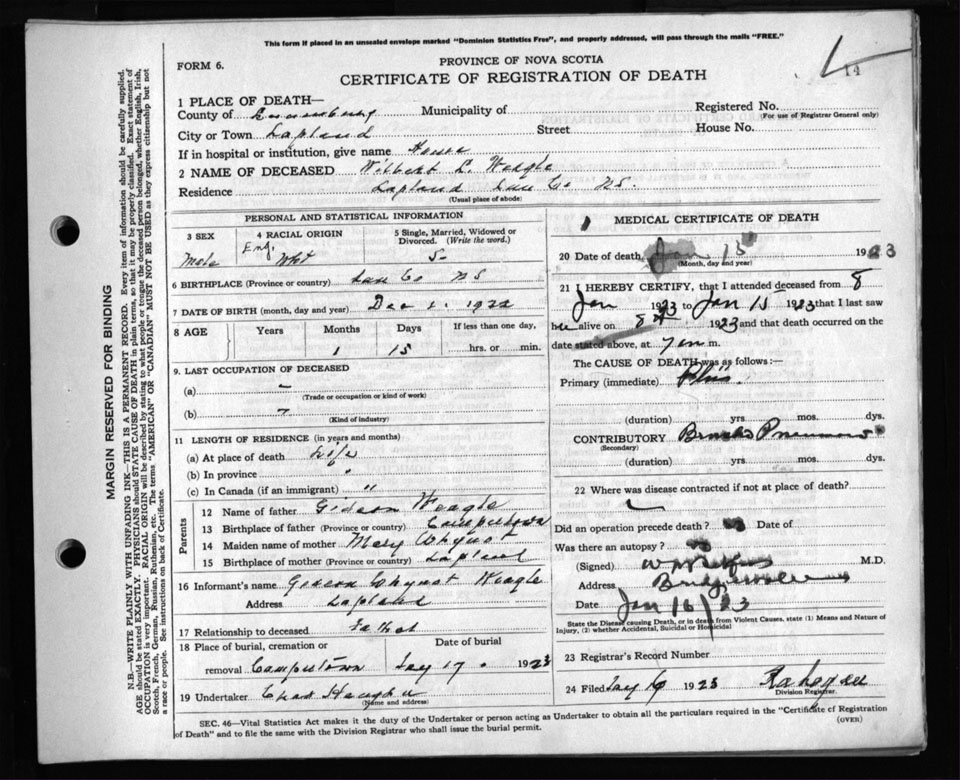 This form if placed in an unsealed envelope marked "Dominion Statistics Free", and properly addressed, will pass through the mails "FREE."
14
FORM 6.
PROVINCE OF NOVA SCOTIA
CERTIFICATE OF REGISTRATION OF DEATH
1 PLACE OF DEATH—
County of Lunenburg Municipality of
Registered No.
(For use of Registrar General only)
City or Town Lapland Street House No.
If in hospital or institution, give name House
2 NAME OF DECEASED Wilbert L. Weagle
Residence Lapland Lun Co NS.
(Usual place of abode)
PERSONAL AND STATISTICAL INFORMATION
3 SEX
Male
4 RACIAL ORIGIN
Eng. Wht
5 Single, Married, Widowed or Divorced. (Write the word.)
S
6 BIRTHPLACE (Province or country) Lun Co NS
7 DATE OF BIRTH (month, day and year) Dec 1922
8 AGE
Years Months Days If less than one day,
1 15 hrs. or min.
9. LAST OCCUPATION OF DECEASED
(a) –
(Trade or occupation or kind of work)
(b)
(Kind of industry)
11 LENGTH OF RESIDENCE (in years and months)
(a) At place of death Life
(b) In province "
(c) In Canada (if an immigrant) "
Parents
12 Name of father Gideon Weagle
13 Birthplace of father (Province or country) Camperdown
14 Maiden name of mother Mary Whynot
15 Birthplace of mother (Province or country) Lapland
16 Informant's name Gideon Whynot Weagle
Address Lapland
17 Relationship to deceased Father
18 Place of burial, cremation or removal
Date of burial
17 1923
19 Undertaker Chas
(Name and address)
MEDICAL CERTIFICATE OF DEATH
20 Date of death Jan 15 1923
(Month, day and year)
21 I HEREBY CERTIFY, that I attended deceased from 8
Jan 1923 to Jan 15 1923 that I last saw
alive on 8 1923 and that death occurred on the
date stated above, at 7 m.
The CAUSE OF DEATH was as follows:—
Primary (immediate)
(duration) yrs mos. dys.
CONTRIBUTORY Broncho Pneumonia
(Secondary)
(duration) yrs. mos. dys.
22 Where was disease contracted if not at place of death?
Did an operation precede death? Date of
Was there an autopsy? no
(Signed) M.D.
Address Bridgewater
Date Jan 16/23
State the Disease causing Death, or in death from Violent Causes, state (1) Means and Nature of Injury, (2) whether Accidental, Suicidal or Homicidal
23 Registrar's Record Number
24 Filed 1923
Division Registrar
SEC. 46—Vital Statistics Act makes it the duty of the Undertaker or person acting as Undertaker to obtain all the particulars required in the "Certificate of Registration of Death" and to file the same with the Division Registrar who shall issue the burial permit.
(OVER)
MARGIN RESERVED FOR BINDING
N.B.—WRITE PLAINLY WITH UNFADING INK—THIS IS A PERMANENT RECORD. Every item of information should be carefully supplied.
AGE should be stated EXACTLY. PHYSICIANS should STATE CAUSE OF DEATH in plain terms, so that it may be properly classified. Exact statement of
OCCUPATION is very important. RACIAL ORIGIN will be described by stating to what people or tongue the deceased person belonged, whether English, Irish,
Scotch, French, German, Russian, Ruthenian, etc. The terms "AMERICAN" or "CANADIAN" MUST NOT BE USED as they express citizenship but not
a race or people. See instructions on back of Certificate.